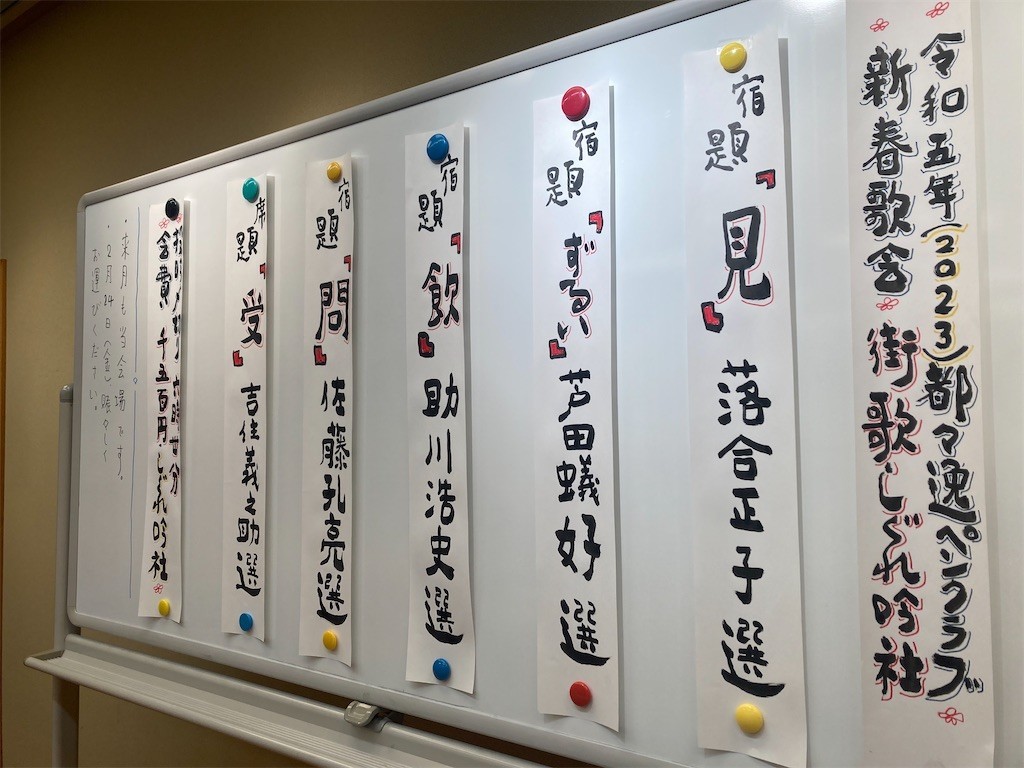 令和五年(2023)都々逸ペンクラブ
新春歌会 街歌・しぐれ吟社
宿題『見』落合正子選
宿題『ずるい』芦田蟻好選
宿題『飲』助川浩史選
宿題『問』佐藤孔亮選
席題『受』吉住義之助選
六時廿分
会費 千五百円 しぐれ吟社
・来月も当会場です。
・2月24日(金)賑々しく
お運びください。